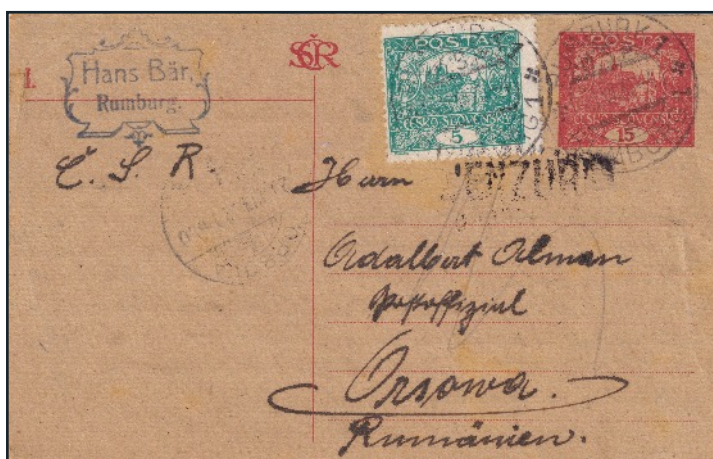 Hans Bär,
Rumburg.
Č. S. R
SČR
POSTA
ČESKO-SLOVENSKÁ
5
POSTA
ČESKO-SLOVENSKÁ
15
CENZURA
Herrn
Adalbert Alman
Postoffizial
Orsowa.
Rumänien.